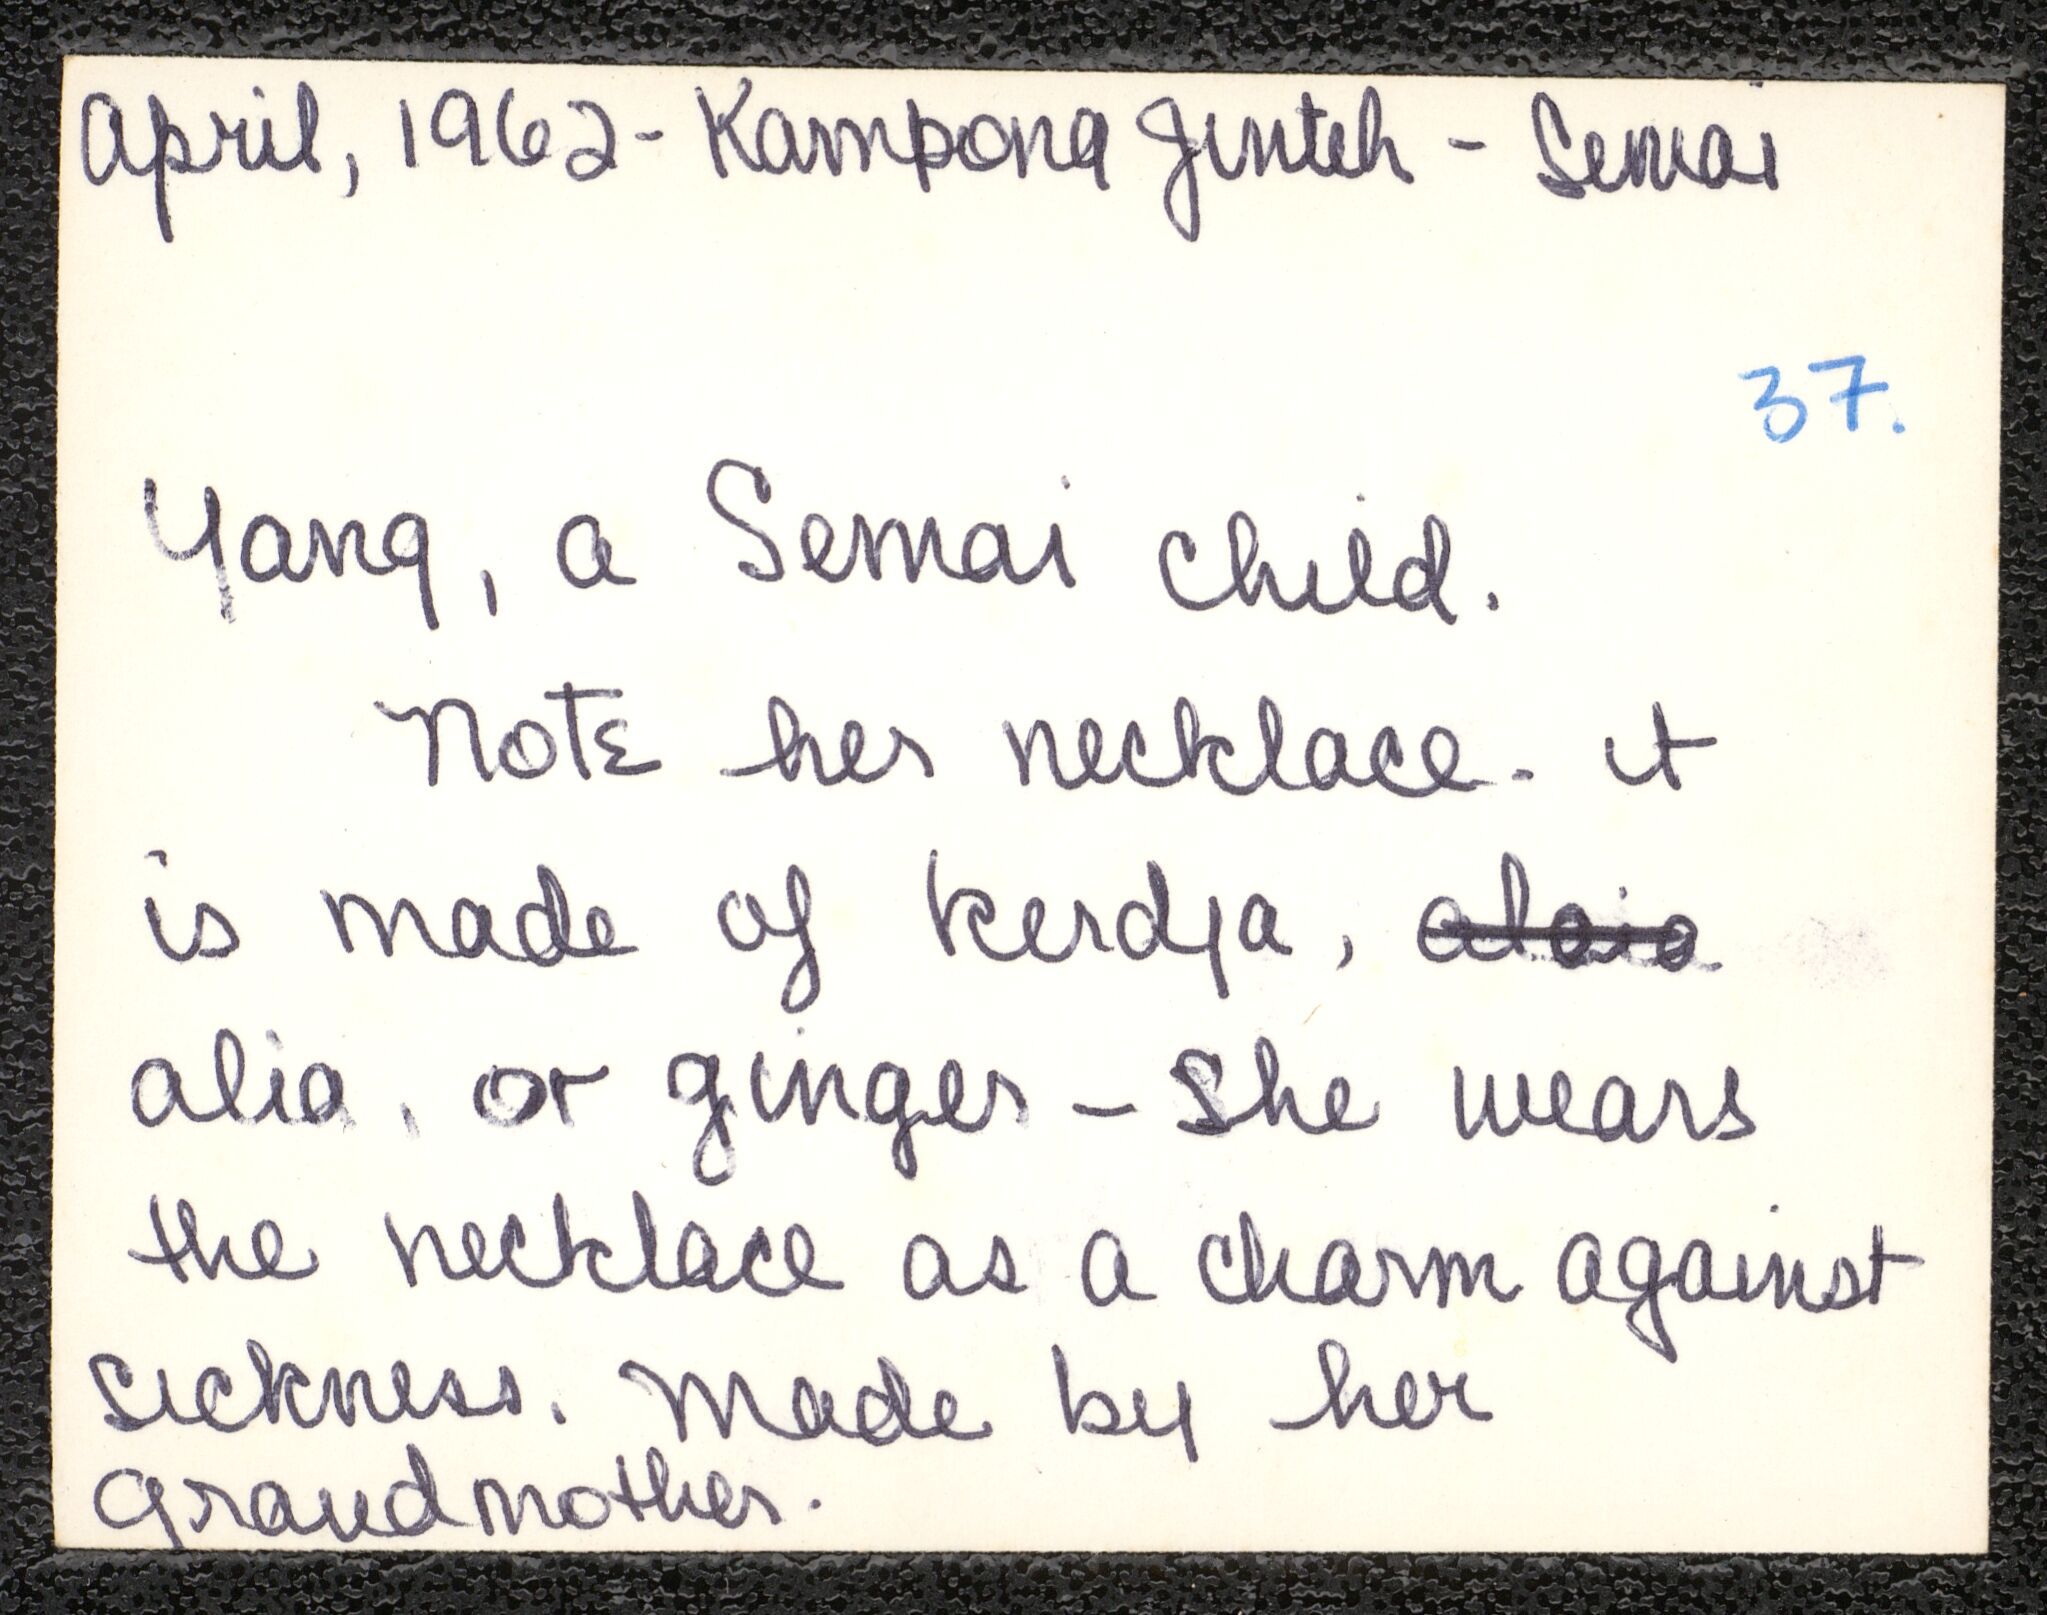 April, 1962 - Kampong Jinteh - Semai
37.
Yang, a Semai child.
Note her necklace. it
is made of kerdja, alaia
alia, or ginger - She wears
the necklace as a charm against
sickness. Made by her
grandmother.